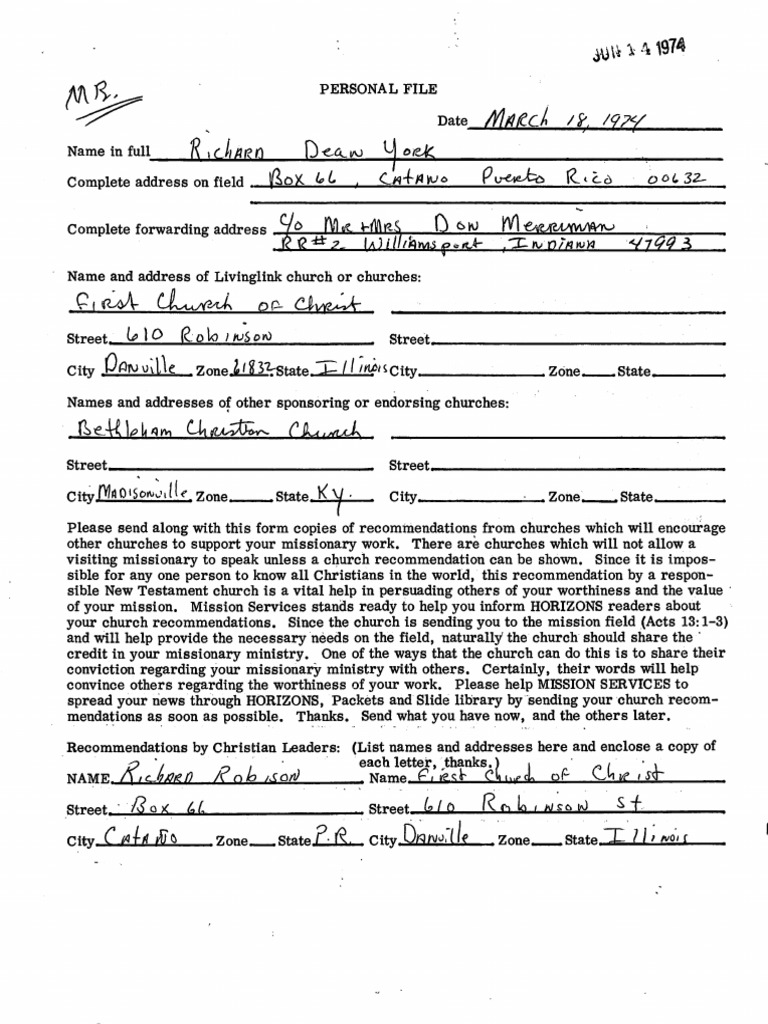 JUN 14 1974
MR.
PERSONAL FILE
Date MARCH 18, 1974
Name in full RiCHARD Dean York
Complete address on field Box 66, CATANO Puerto Rico 00632
Complete forwarding address c/o MR + MRS Don Merriman
RR#2 Williamsport, INDIANA 47993
Name and address of Livinglink church or churches:
First Church of Christ
Street 610 Robinson Street
City Danville Zone 61832 State Illinois City Zone State
Names and addresses of other sponsoring or endorsing churches:
Bethleham Christian Church
Street Street
City Madisonville Zone State Ky. City Zone State
Please send along with this form copies of recommendations from churches which will encourage
other churches to support your missionary work. There are churches which will not allow a
visiting missionary to speak unless a church recommendation can be shown. Since it is impos-
sible for any one person to know all Christians in the world, this recommendation by a respon-
sible New Testament church is a vital help in persuading others of your worthiness and the value
of your mission. Mission Services stands ready to help you inform HORIZONS readers about
your church recommendations. Since the church is sending you to the mission field (Acts 13:1-3)
and will help provide the necessary needs on the field, naturally the church should share the
credit in your missionary ministry. One of the ways that the church can do this is to share their
conviction regarding your missionary ministry with others. Certainly, their words will help
convince others regarding the worthiness of your work. Please help MISSION SERVICES to
spread your news through HORIZONS, Packets and Slide library by sending your church recom-
mendations as soon as possible. Thanks. Send what you have now, and the others later.
Recommendations by Christian Leaders: (List names and addresses here and enclose a copy of
each letter, thanks.)
NAME Richard Robison Name First Church of Christ
Street Box 66 Street 610 Robinson St
City CATAÑO Zone State P.R. City Danville Zone State Illinois